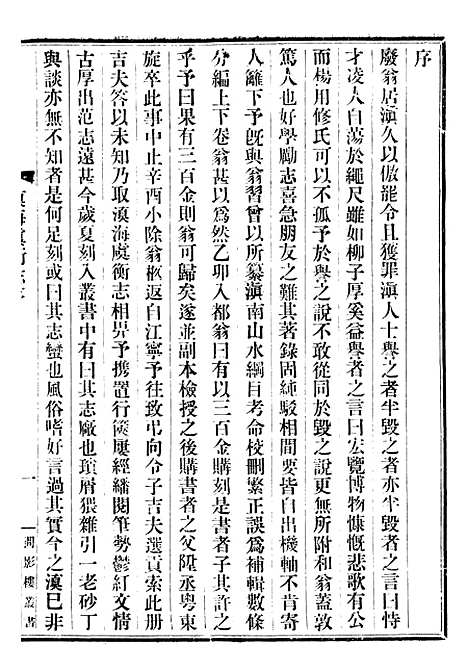 序
廢翁居滇久以傲龍令且獲罪滇人士譽之者半毀之者亦半毀之者言曰恃
才凌人自蕩於繩尺雖如柳子厚奚益譽之者之言曰宏覽博物慷慨悲歌有公
而楊用修氏可以不孤予於譽之說不敢從同於毀之說更無所附和翁蓋敦
篤人也好學勵志喜急朋友之難其著錄固純駁相間然皆自出機軸不肯寄
人籬下予旣與翁習曾以所纂滇南山水綱目考命校刪繁正誤爲補輯數條
分編上下卷翁甚以爲然乙卯入都翁曰有以三百金購刻是書者子其許之
乎予曰果有三百金則翁可歸矣遂並副本檢授之後購書者之父陞丞粵東
旋卒此事中止辛酉小除翁柩返自江寧予往致弔向令子吉夫選貢索此册
吉夫答以未知乃取滇海虞衡志相畀予攜置行篋屢經繙閱筆勢鬱紆文情
古厚出范志遠甚今歲夏刻入叢書中有曰其志廠也瑣屑猥雜引一老砂丁
與談亦無不知者是何足刻或曰其志蠻也風俗嗜好言過其實今之滇已非
滇海虞衡志序
一
問影樓叢書